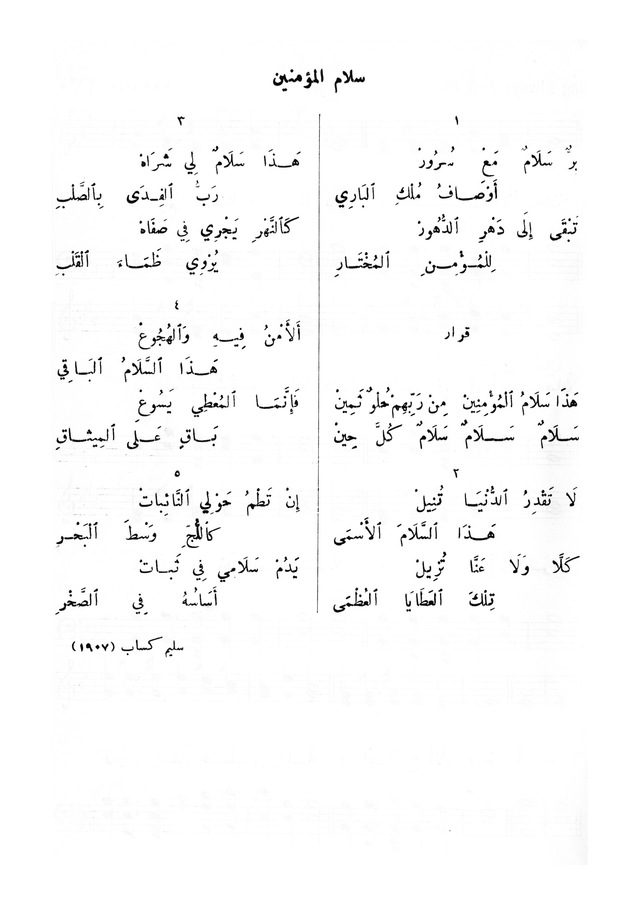 سلام المؤمنين
١
بِرٌّ سَلَامٌ مَعْ سُرُورْ
أَوْصَافُ مُلْكِ ٱلبَارِي
تَبْقَى إِلَى دَهْرِ ٱلدُّهُورْ
لِلمُؤْمِنِ ٱلمُخْتَارِ
قرار
هَذَا سَلَامُ ٱلمُؤْمِنِينْ مِنْ رَبِّهِمْ حُلْوٌ ثَمِينْ
سَلَامٌ سَلَامٌ سَلَامٌ كُلَّ حِينْ
٢
لَا تَقْدِرُ ٱلدُّنْيَا تُنِيلْ
هَذَا ٱلسَّلَامَ ٱلأَسْمَى
كَلَّا وَلَا عَنَّا تُزِيلْ
تِلْكَ ٱلعَطَايَا ٱلعُظْمَى
٣
هَذَا سَلَامٌ لِي شَرَاهْ
رَبُّ ٱلفِدَى بِٱلصَّلْبِ
كَٱلنَّهْرِ يَجْرِي فِي صَفَاهْ
يُرْوِي ظَمَاءَ ٱلقَلْبِ
٤
أَلأَمْنُ فِيهِ وَٱلهُجُوعْ
هَذَا ٱلسَّلَامُ ٱلبَاقِي
فَإِنَّمَا ٱلمُعْطِي يَسُوعْ
بَاقٍ عَلَى ٱلمِيثَاقِ
٥
إِنْ تَطْمُ حَوْلِي ٱلنَّائِبَاتْ
كَٱللُّجِّ وَسْطَ ٱلبَحْرِ
يَدُمْ سَلَامِي فِي ثَبَاتْ
أَسَاسُهُ فِي ٱلصَّخْرِ
سليم كساب (١٩٠٧)